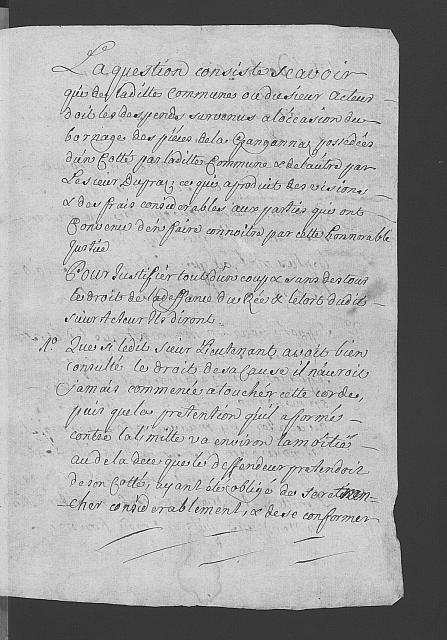 La question consiste a scavoir
qui des laditte Commune ou du sieur acteur
doit les despends survenus a l'occasion du
bornage des pièces de la Changanna possedées
d'un Cotté par laditte Commune & de l'autre par
Le sieur Dupraz; ce qui a produit des visions
& des frais considerables aux parties qui ont
Convenu d'en faire connoitre par cette honnorable
Justice
Pour Justifier tout d'un coup & sans destour
le droit de la deffance du Rée & le tort dudit
sieur Acteur Ils diront
Nº. Que si ledit sieur Lieutenant avoit bien
consulté le droit de sa Cause il n'auroit
jamais commencé a touchér cette corde,
puis que la pretention qu'il a formée
contre la limitte va environ la moitié
au de la de ce que le deffendeur pretendoit
de son Cotté, ayant été obligé de se retran-
-cher considerablement, & de se conformer